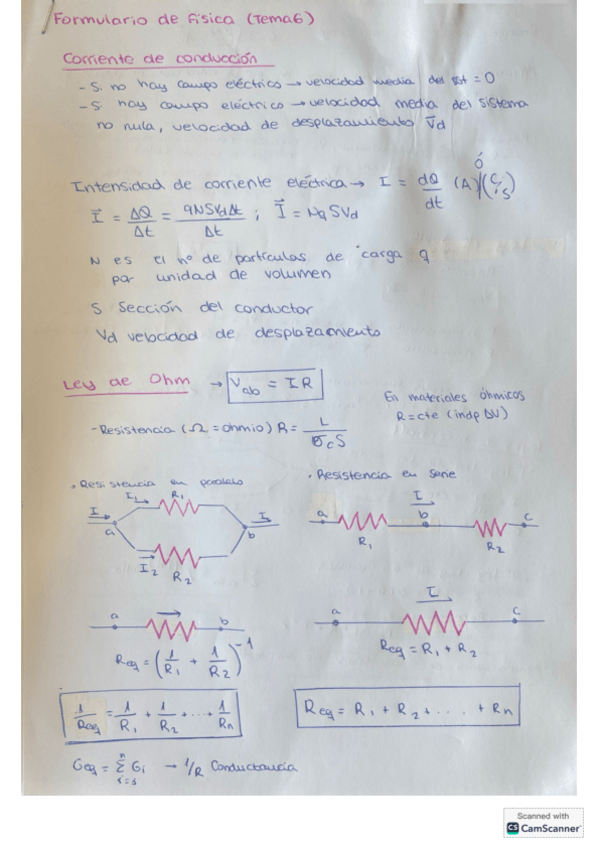 Formulario de Física (Tema6)
Corriente de conducción
- Si no hay campo eléctrico → velocidad media del sist = 0
- Si hay campo eléctrico → velocidad media del sistema
no nula, velocidad de desplazamiento V̄d
Intensidad de corriente eléctrica → I = dQ/dt (A) ó (C/s)
I⃗ = ΔQ/Δt = qNSVdΔt/Δt ; I⃗ = NqSVd
N es el nº de partículas de carga q
por unidad de volumen
S Sección del conductor
Vd velocidad de desplazamiento
Ley de Ohm → Vab = IR
En materiales óhmicos
R=cte (indp ΔV)
- Resistencia (Ω = ohmio) R = L/σcS
· Resistencia en paralelo
· Resistencia en serie.
I I1 R1 I
a b
I2 R2
I
a b c
R1 R2
a b
I
a c
Req = (1/R1 + 1/R2)^-1
Req = R1 + R2
1/Req = 1/R1 + 1/R2 + ... + 1/Rn
Req = R1 + R2 + .... + Rn
Geq = Σ Gi → 1/R Conductancia
Scanned with
CS CamScanner